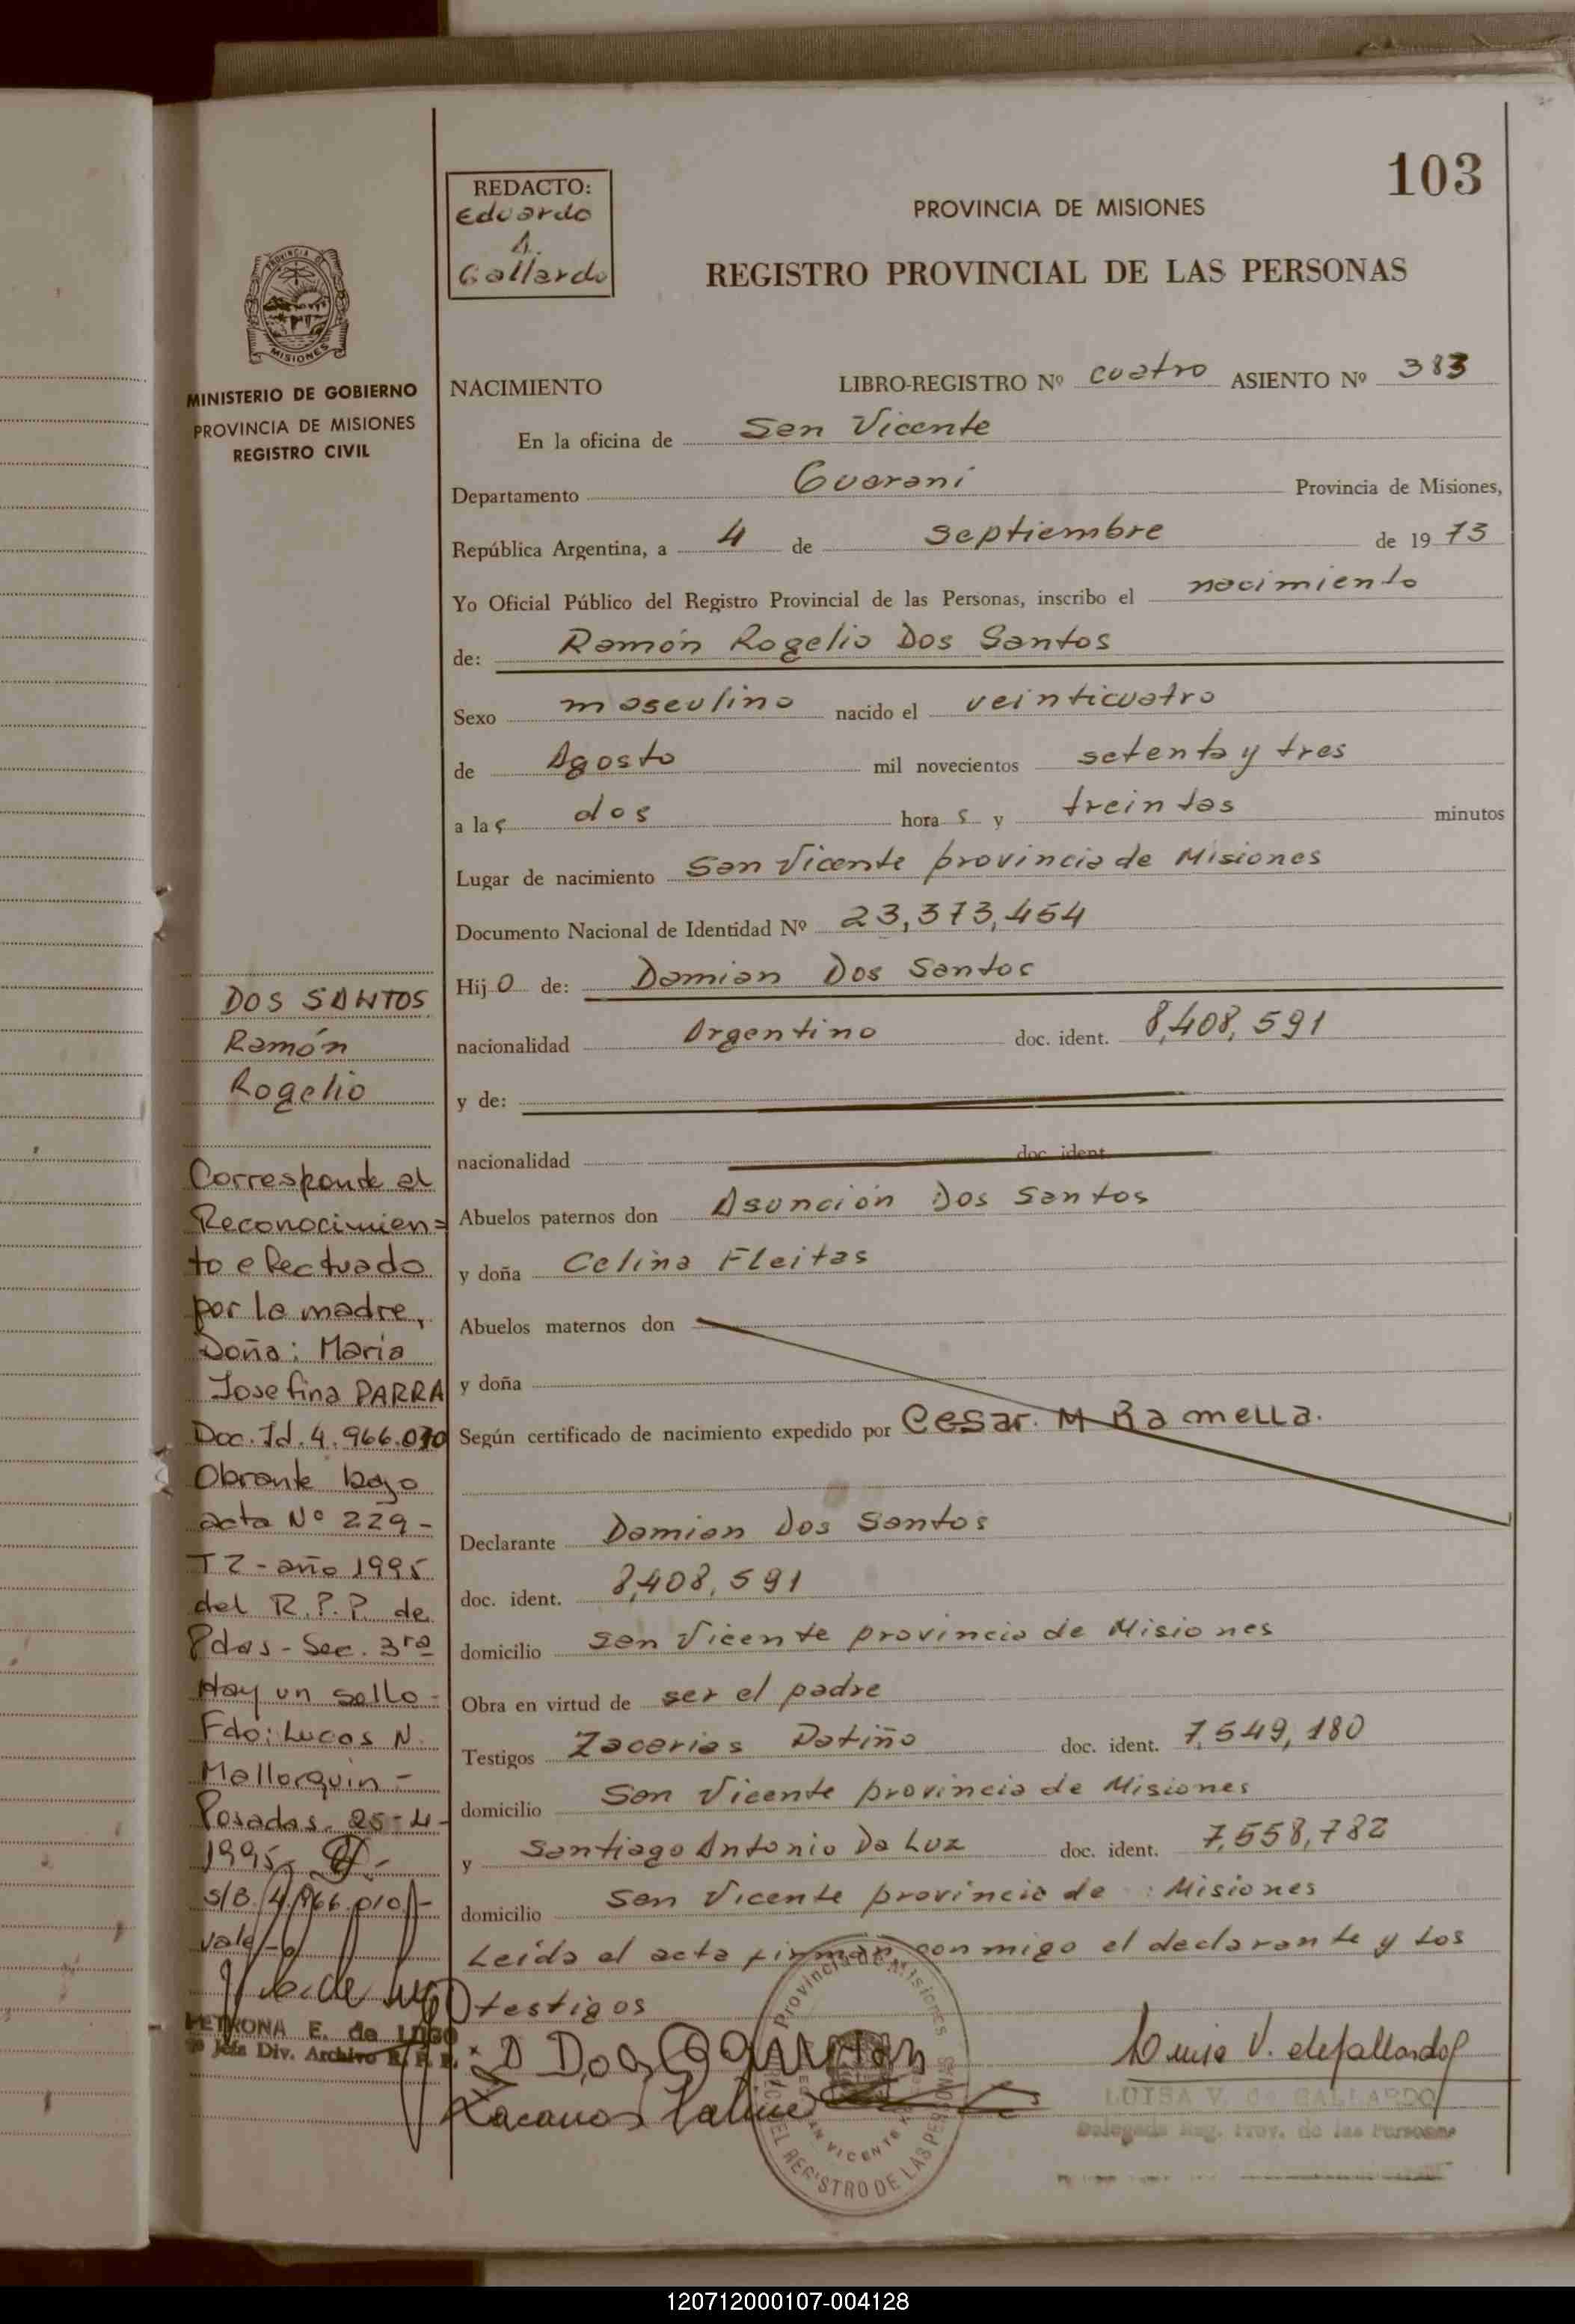 103
REDACTO:
Eduardo
A.
Gallardo
PROVINCIA DE MISIONES
REGISTRO PROVINCIAL DE LAS PERSONAS
PROVINCIA DE
MISIONES
MINISTERIO DE GOBIERNO
PROVINCIA DE MISIONES
REGISTRO CIVIL
NACIMIENTO LIBRO-REGISTRO Nº cuatro ASIENTO Nº 383
En la oficina de San Vicente
Departamento Guaraní Provincia de Misiones,
República Argentina, a 4 de septiembre de 1973
Yo Oficial Público del Registro Provincial de las Personas, inscribo el nacimiento
de: Ramón Rogelio Dos Santos
Sexo masculino nacido el veinticuatro
de Agosto mil novecientos setenta y tres
a las dos horas y treintas minutos
Lugar de nacimiento San Vicente provincia de Misiones
Documento Nacional de Identidad Nº 23,373,454
Hijo de: Damian Dos Santos
nacionalidad Argentino doc. ident. 8,408,591
y de:
nacionalidad doc. ident.
Abuelos paternos don Asunción Dos Santos
y doña Celina Fleitas
Abuelos maternos don
y doña
Según certificado de nacimiento expedido por Cesar. M Ramella.
Declarante Damian Dos Santos
doc. ident. 8,408,591
domicilio San Vicente provincia de Misiones
Obra en virtud de ser el padre
Testigos Zacarias Patiño doc. ident. 7,549,180
domicilio San Vicente provincia de Misiones
y Santiago Antonio Da Luz doc. ident. 7,558,782
domicilio San Vicente provincia de Misiones
Leída el acta firman conmigo el declarante y los
testigos
DOS SANTOS
Ramón
Rogelio
Corresponde al
Reconocimien=
to efectuado
por la madre,
Doña: María
Josefina PARRA
Doc. Id. 4.966.010
Obrante bajo
acta Nº 229-
T2-año 1995
del R.P.P. de
Pdas-Sec. 3ra
Hay un sello-
Fdo: Lucas N.
Mallorquin-
Posadas. 25-4-
1995-
S/B./4.966.010/-
vale-
PETRONA E. de LUGO
Jefa Div. Archivo R. P. P.
D Dos Santos
Provincia de Misiones
SAN VICENTE
DEL REGISTRO DE LAS PERSONAS
Luisa V. de Gallardo
LUISA V. de GALLARDO
Delegada Reg. Prov. de las Personas
120712000107-004128